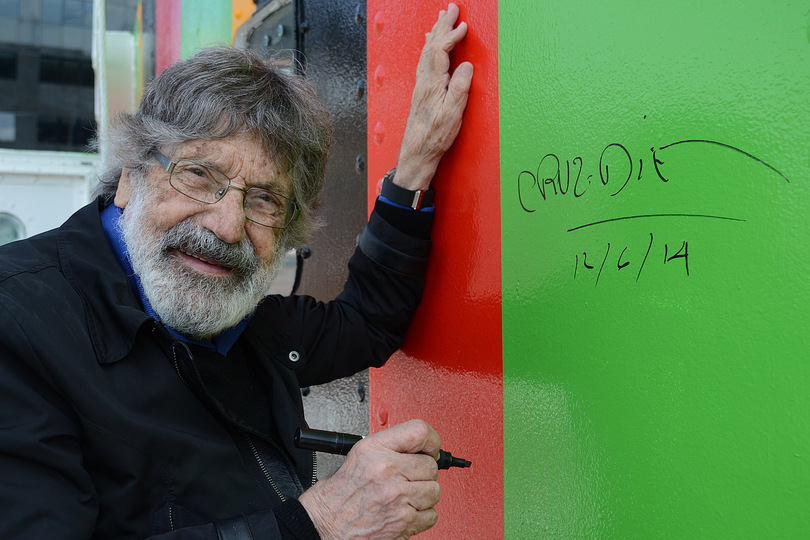 CRUZ-DiEZ
12/6/14